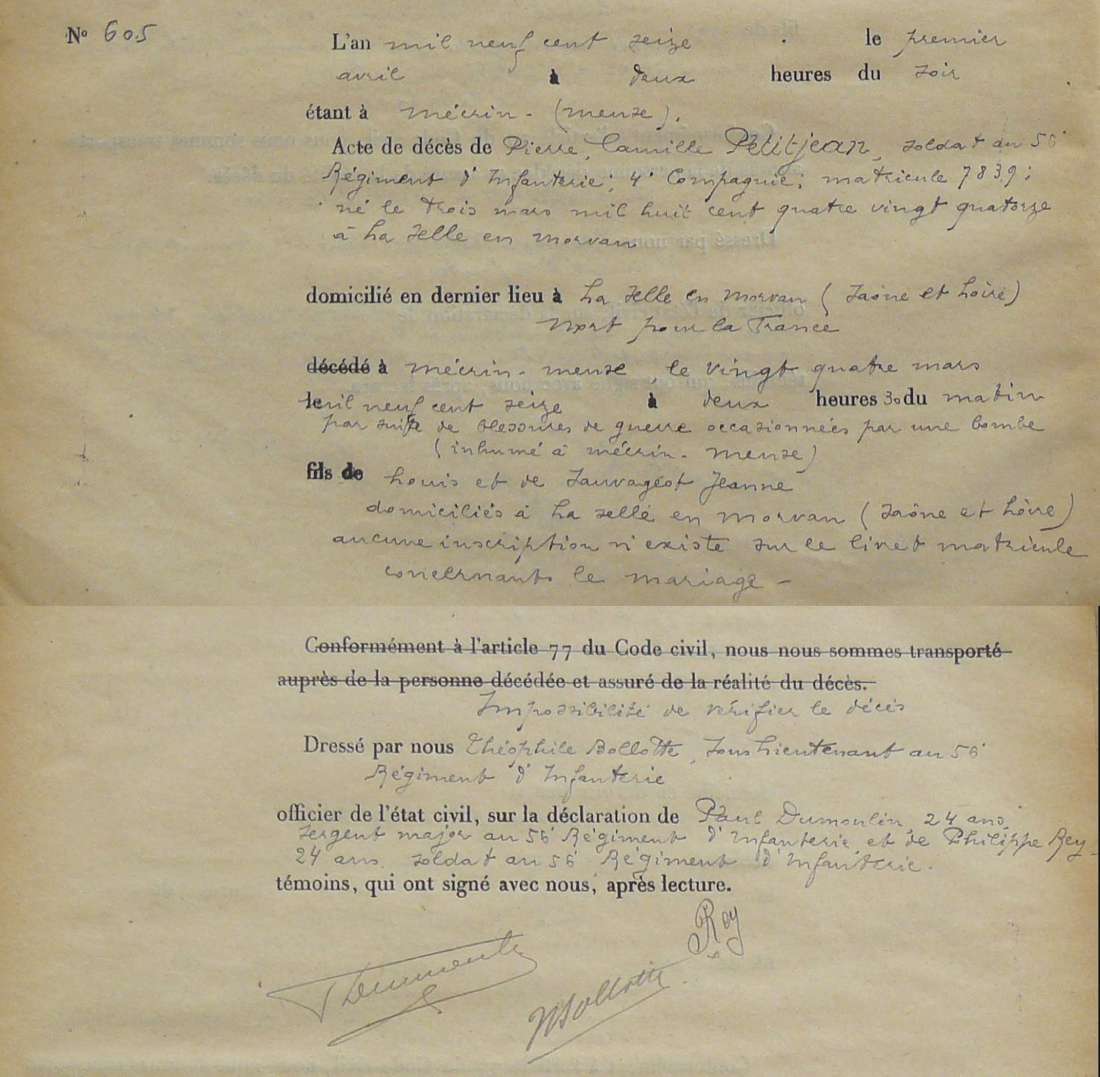 N° 605
L'an mil neuf cent seize le premier
avril à deux heures du soir
étant à Mécrin - (Meuse).
Acte de décès de Pierre, Camille Petitjean, soldat au 56e
Régiment d'Infanterie; 4e Compagnie; matricule 7839;
né le trois mars mil huit cent quatre vingt quatorze
à La Selle en Morvan
domicilié en dernier lieu à La Selle en Morvan (Saône et Loire)
Mort pour la France
décédé à Mécrin - Meuse, le vingt quatre mars
le mil neuf cent seize à deux heures 30 du matin
par suite de blessures de guerre occasionnées par une bombe
(inhumé à Mécrin - Meuse)
fils de Louis et de Sauvageot Jeanne
domiciliés à La Selle en Morvan (Saône et Loire)
aucune inscription n'existe sur le livret matricule
concernants le mariage -
Conformément à l'article 77 du Code civil, nous nous sommes transporté
auprès de la personne décédée et assuré de la réalité du décès.
Impossibilité de vérifier le décès
Dressé par nous Théophile Bollotte, Sous Lieutenant au 56e
Régiment d'Infanterie
officier de l'état civil, sur la déclaration de Paul Dumoulin, 24 ans,
Sergent major au 56e Régiment d'Infanterie et de Philippe Rey
24 ans, soldat au 56e Régiment d'Infanterie.
témoins, qui ont signé avec nous, après lecture.
Rey
Bollotte